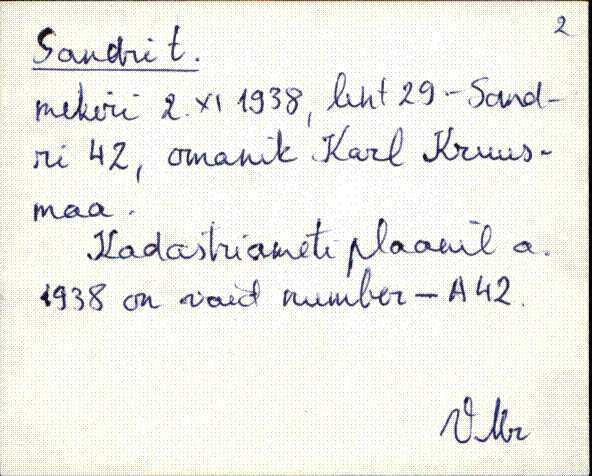 2
Sandri t.
2. XI 1938, leht 29 - Sand-
ri 42, omanik Karl Kruus-
maa.
Kadastriameti plaanil a.
1938 on vaid number - A 42.
VMr